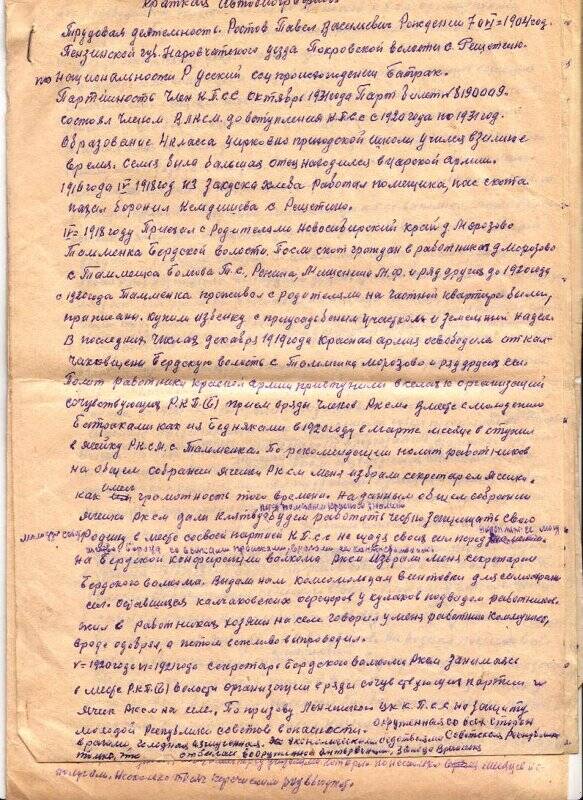 Краткая Автобиография
Трудовая деятельность. Ростов Павел Васильевич Рождении 7 VI = 1904 год.
Пензинской губ. Наровчатского уезда Покровской волости с. Рещетино.
по национальности Русский соц происхождении Батрак.
Партийность член К.П.С.С. октября 1931 года Парт билет № 8190009.
состоял членом В.Л.К.С.М. до вступления К.П.С.С. с 1920 года по 1931 год.
Образование 4 класса церковно приходской школы учился в зимние
время. Семия была большая отец находился в царской армии.
1916 года IV 1918 год из за куска хлеба Работал помещика, пас скота
пахал боронил с Рещетино.
IV = 1918 году Приехал с Родителями Новосибирский край д. Морозово
Тальменка Бердской волости. Посли скот граждан в работниках д. Морозово
с. П.С., Ренина, Мищенино М.Ф. и ряд других до 1920 году
с 1920 года Тальменка проживал с родителями на частной квартире были,
приписаны. купили избенку с приусадебным участком и земельный надел.
В последних числах декабря 1919 года Красная армия освободила от кол-
чаковщены Бердскую волость с Тальменка Морозово и ряд других сел.
Полит работники Красной армии приступили в селах к организаций
сочувствующих Р.К.П.(б) прием в ряды членов Р.К.С.М. Вместе с молодежию
Батраками как из Бедняками в 1920 году в марте месяце вступил
в ячейку Р.К.С.М. с. Тальменка. По рекомендации полит работников
на общем собрании ячейки Р.К.С.М меня избрали секретарем ячейки.
как имел грамотность того времени. на данным общем собрании
ячейки Р.К.С.М дали клятву будем работать чесно защищать свою
Родину в месте со своей партией К.П.С.С не щадя своих сил перед
на Бердской конференции волкома Р.К.С.М избрали меня секретарем
Бердского волкома. Выдали нам комсомольцам винтовки для самоохраны
сел. оставшихся колчаковских офицеров у кулаков под видом работников.
жил в Работниках хозяин на селе говорил у меня работник Коммунист,
вроде одобрял, а потом вежливо выпроводил.
V = 1920 года VI = 1921 года секретарь Бердского волкома Р.К.С.М. Занимался
в месте Р.К.П.(б) волости организации в ряды сочувствующих партии и
ячеек Р.К.С.М на селе. По призыву Ленинской ЦК К.П.С.С на защиту
молодой Республики советов в опасности. окруженная со всех сторон
врагами, голодная изнуренная. Советской Республики
только, что отбивая вооруженной интервенции,